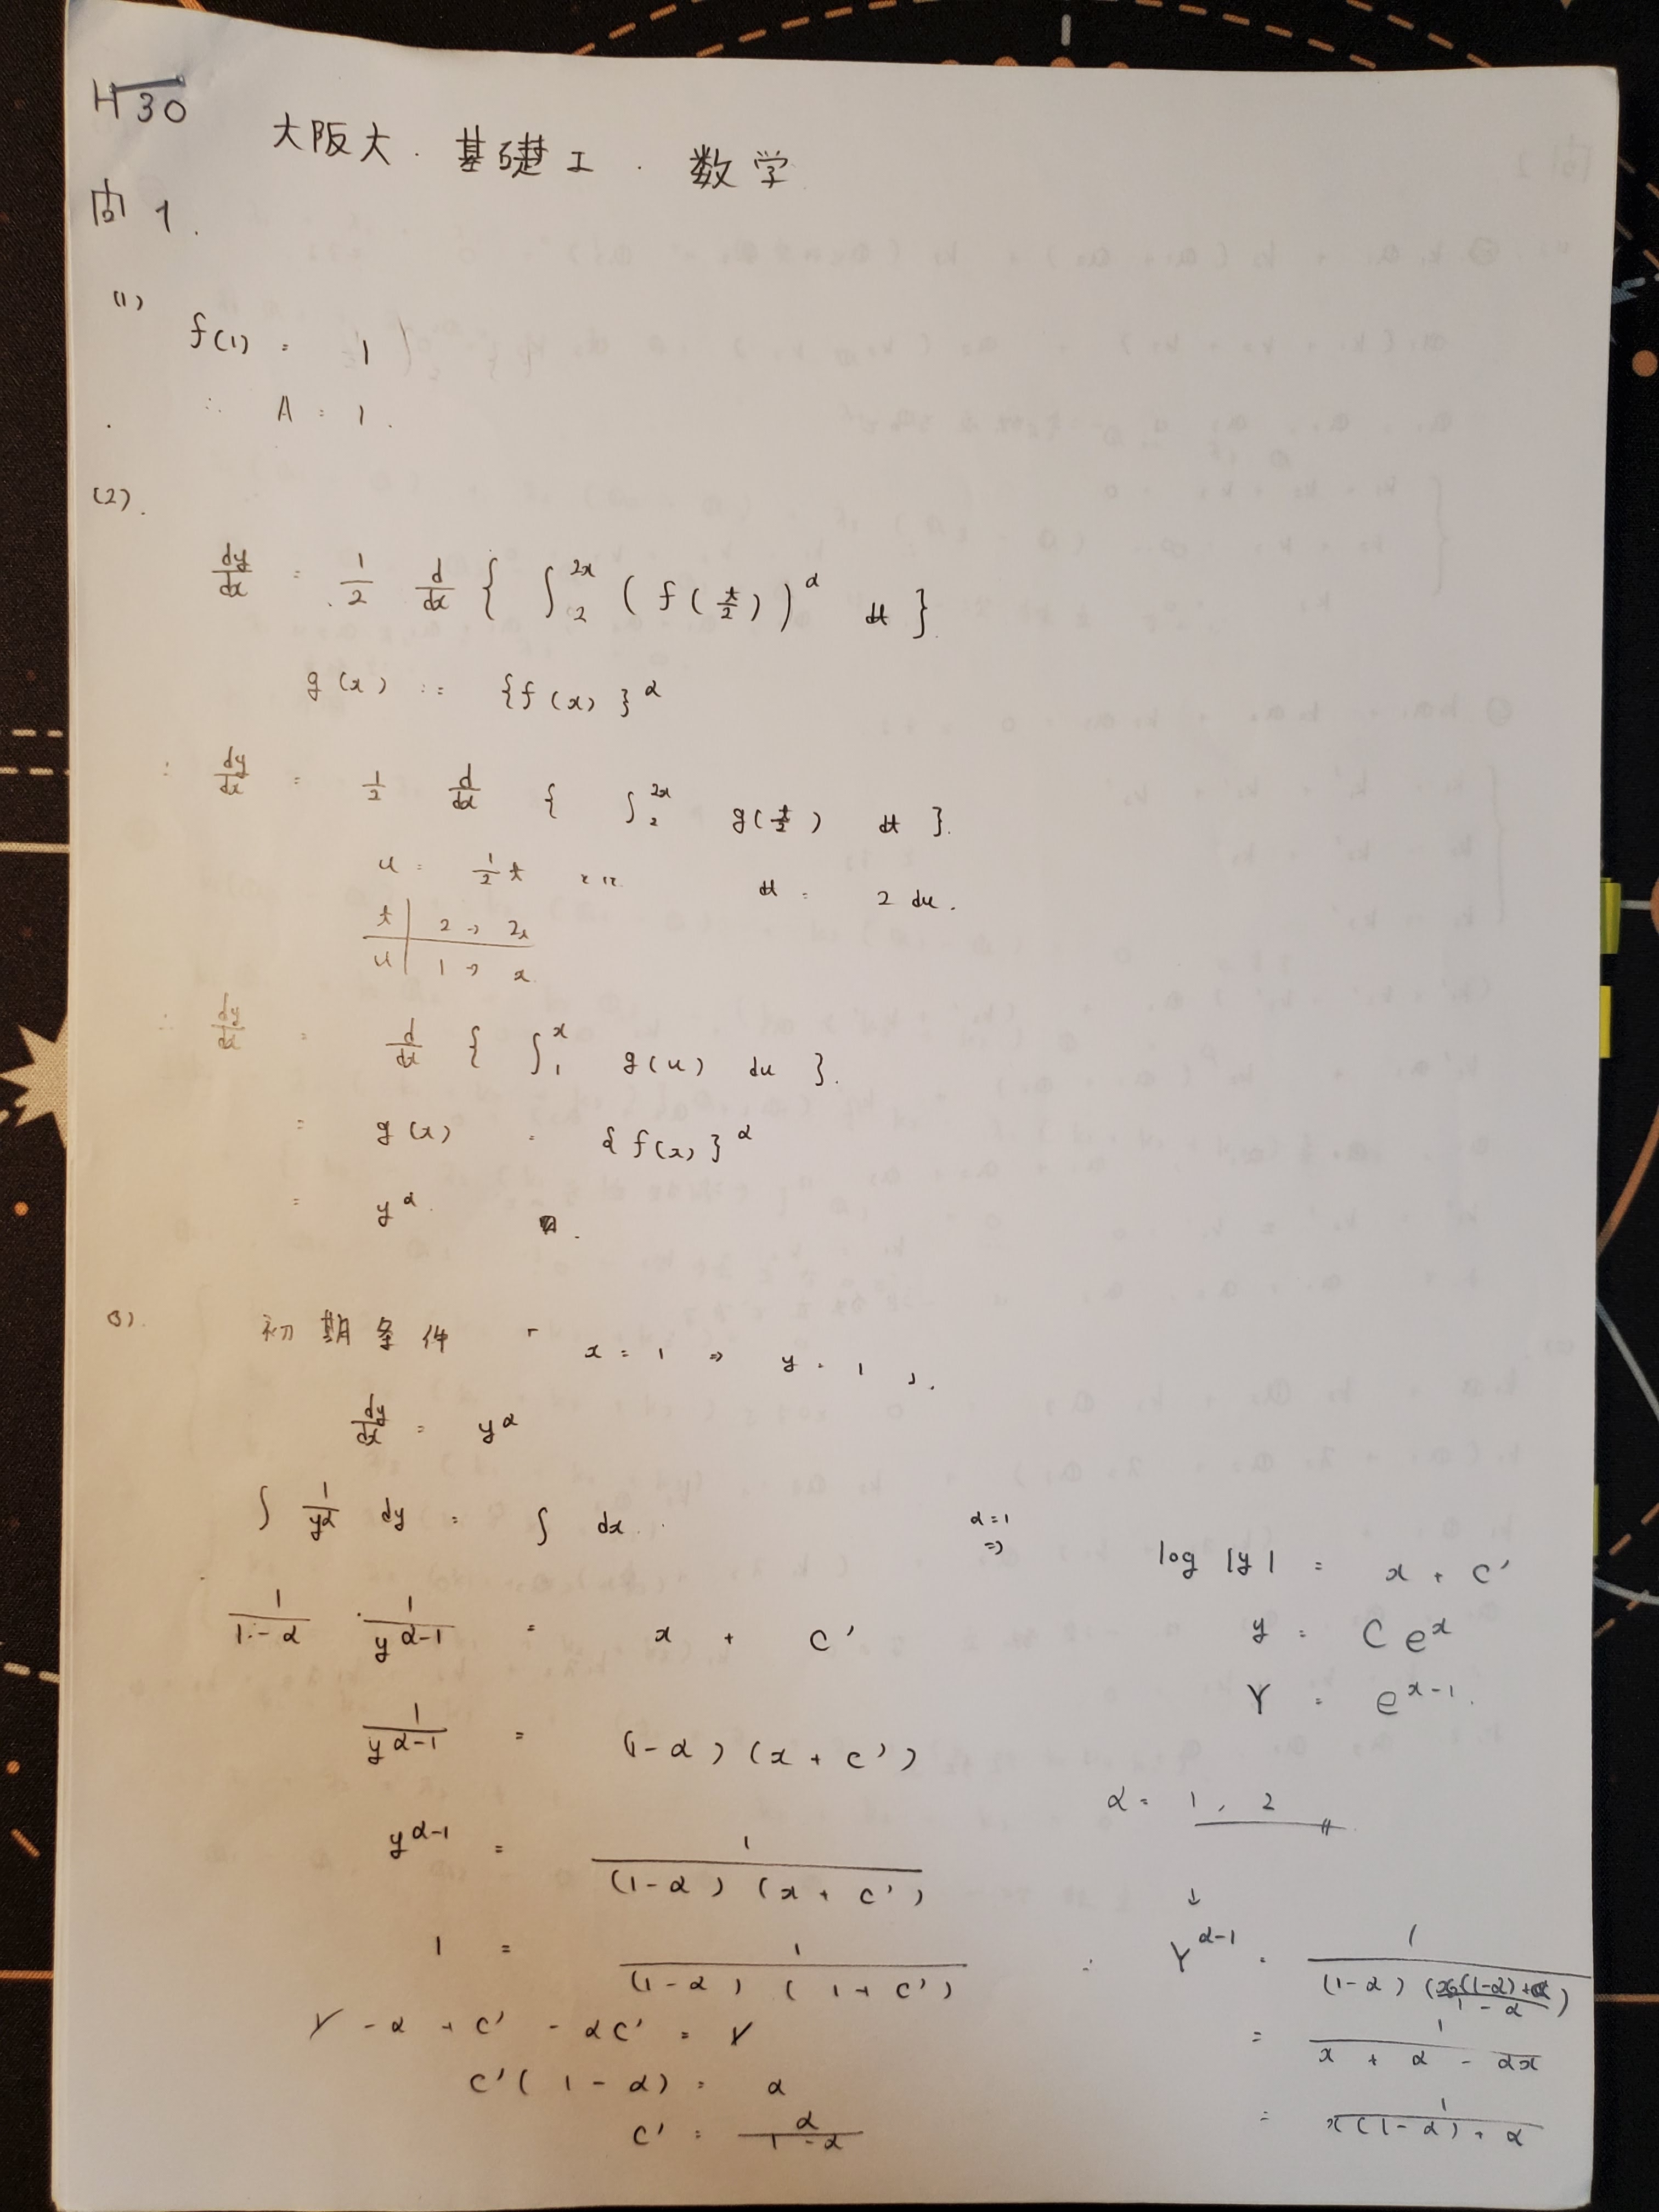 H30
大阪大・基礎工・数学
問1.
(1)
f(1) = 1
∴ A = 1.
(2).
dy/dx = 1/2 d/dx { ∫_2^{2x} ( f(t/2) )^α dt }.
g(x) := {f(x)}^α
∴ dy/dx = 1/2 d/dx { ∫_2^{2x} g(t/2) dt }.
u = 1/2 t dt = 2 du.
t | 2 → 2x
u | 1 → x
∴ dy/dx = d/dx { ∫_1^x g(u) du }.
= g(x) = {f(x)}^α
= y^α.
(3).
初期条件 「x = 1 ⇒ y = 1」.
dy/dx = y^α
∫ 1/y^α dy = ∫ dx.
1/(1-α) · 1/y^{α-1} = x + C'
1/y^{α-1} = (1-α)(x + C')
y^{α-1} = 1/((1-α)(x + C'))
1 = 1/((1-α)(1 + C'))
1 - α + C' - αC' = 1
C'(1-α) = α
C' = α/(1-α)
α=1 ⇒ log|y| = x + C'
y = C e^x
Y = e^{x-1}.
α = 1, 2
↓
∴ Y^{α-1} = 1/((1-α)((x(1-α)+α)/(1-α)))
= 1/(x + α - αx)
= 1/(x(1-α) + α)